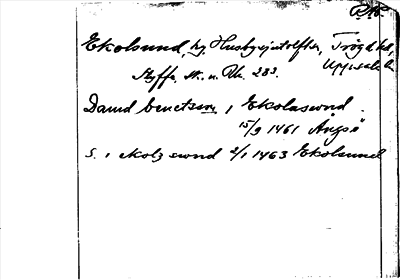 Ekolsund, by, Husbysjutolfter, Trögd hd,
Uppsala l.
Styffe, Sk. u. Ut. 283.
Dauid benctzson i Ekolaswnd.
15/9 1461 Ängsö
S. i ekolzswnd 2/1 1463 Ekolsund